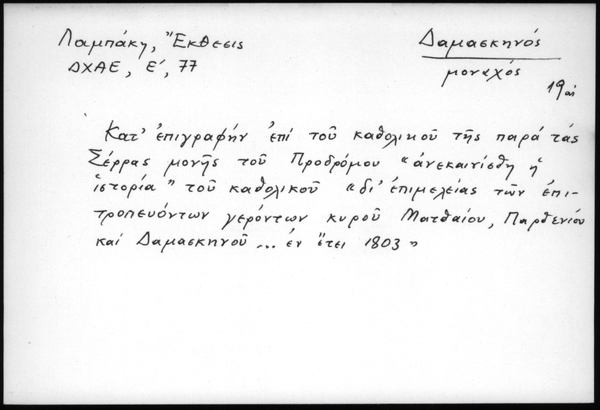 Λαμπάκη, Ἔκθεσις
ΔΧΑΕ, Ε', 77
Δαμασκηνός
μοναχός
19 αἰ
Κατ' ἐπιγραφήν ἐπί τοῦ καθολικοῦ τῆς παρά τάς
Σέρρας μονῆς τοῦ Προδρόμου "ἀνεκαινίσθη ἡ
ἱστορία" τοῦ καθολικοῦ "δι' ἐπιμελείας τῶν ἐπι-
τροπευόντων γερόντων κυροῦ Ματθαίου, Παρθενίου
καί Δαμασκηνοῦ ... ἐν ἔτει 1803"